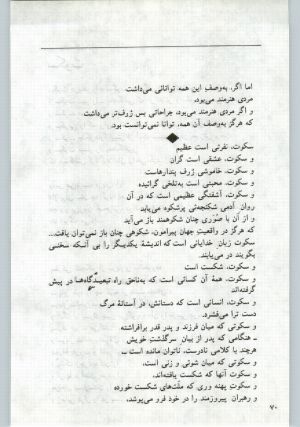 اما اگر، به‌وصف این همه توانائی می‌داشت
مردی هنرمند می‌بود.
و اگر مردی هنرمند می‌بود، جراحاتی بس ژرف‌تر می‌داشت
که هرگز به‌وصف آن همه، توانا نمی‌توانست بود.
سکوت، نفرتی است عظیم
و سکوت، عشقی است گران
و سکوت، خاموشی ژرف پندارهاست
و سکوت، محبتی است به‌تلخی گرائیده
و سکوت، آشفتگی عظیمی است که در آن
روان آدمی شکنجه‌ئی پرشکوه می‌یابد
و از آن با صُوَری چنان شکوهمند باز می‌آید
که هرگز در واقعیتِ جهان پیرامون، شکوهی چنان باز نمی‌توان یافت...
سکوت زبان خدایانی است که اندیشهٔ یکدیگر را بی آنکه سخنی
بگویند در می‌یابند.
و سکوت، شکست است
و سکوت، همهٔ آن کسانی است که به‌ناحق راه تبعیدگاه‌ها در پیش
گرفته‌اند
و سکوت، انسانی است که دستانش، در آستانهٔ مرگ
دست ترا می‌فشرد.
و سکوتی که میان فرزند و پدر قدر برافراشته
ـ هنگامی که پدر از بیان سرگذشت خویش
هرچند با کلامی نادرست، ناتوان مانده است ـ
و سکوتی که میان شوئی و زنی است.
و سکوتِ آنها که شکست یافته‌اند،
و سکوت پهنه وری که ملّت‌های شکست خورده
و رهبران پیروزمند را در خود فرو می‌پوشد،
۷۰